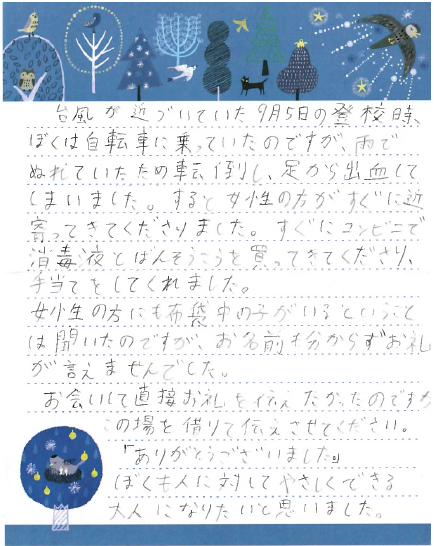 台風が近づいていた9月5日の登校時、
ぼくは自転車に乗っていたのですが、雨で
ぬれていたため転倒し、足から出血して
しまいました。すると女性の方がすぐに近
寄ってきてくださりました。すぐにコンビニで
消毒液とばんそうこうを買ってきてくださり、
手当てをしてくれました。
女性の方にも布袋中の子がいるということ
は聞いたのですが、お名前も分からずお礼
が言えませんでした。
お会いして直接お礼を伝えたかったのですが
この場を借りて伝えさせてください。
「ありがとうございました」
ぼくも人に対してやさしくできる
大人になりたいと思いました。